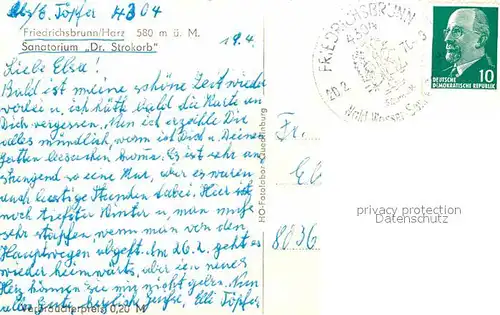 Abs/E. Töpfer 4304
Friedrichsbrunn/Harz 580 m ü. M.
Sanatorium „Dr. Strokorb"
19.4.
Liebe Elsa!
Bald ist meine schöne Zeit wieder
vorbei u. ich hätte bald die Karte an
Dich vergessen. Nun ich erzähle Dir
alles mündlich, wenn ich Dich u. Deine
Gatten besuchen komme. Es ist sehr an
strengend so eine Kur, aber es waren
auch lustige Stunden dabei. Hier ist
noch tiefster Winter u. man muß
sehr stapfen, wenn man von den
Hauptwegen abgeht. Am 26.2. geht es
wieder heimwärts, aber ein neues
Herz können sie mir nicht geben. Nun
alles Gute, herzliche Grüße, Elli Töpfer
Verbraucherpreis 0,20 M
HO-Fotolabor Quedlinburg
FRIEDRICHSBRUNN
4304
20.2. 70-
DEUTSCHE
DEMOKRATISCHE REPUBLIK
10
Fr.
8036
privacy protection
Datenschutz